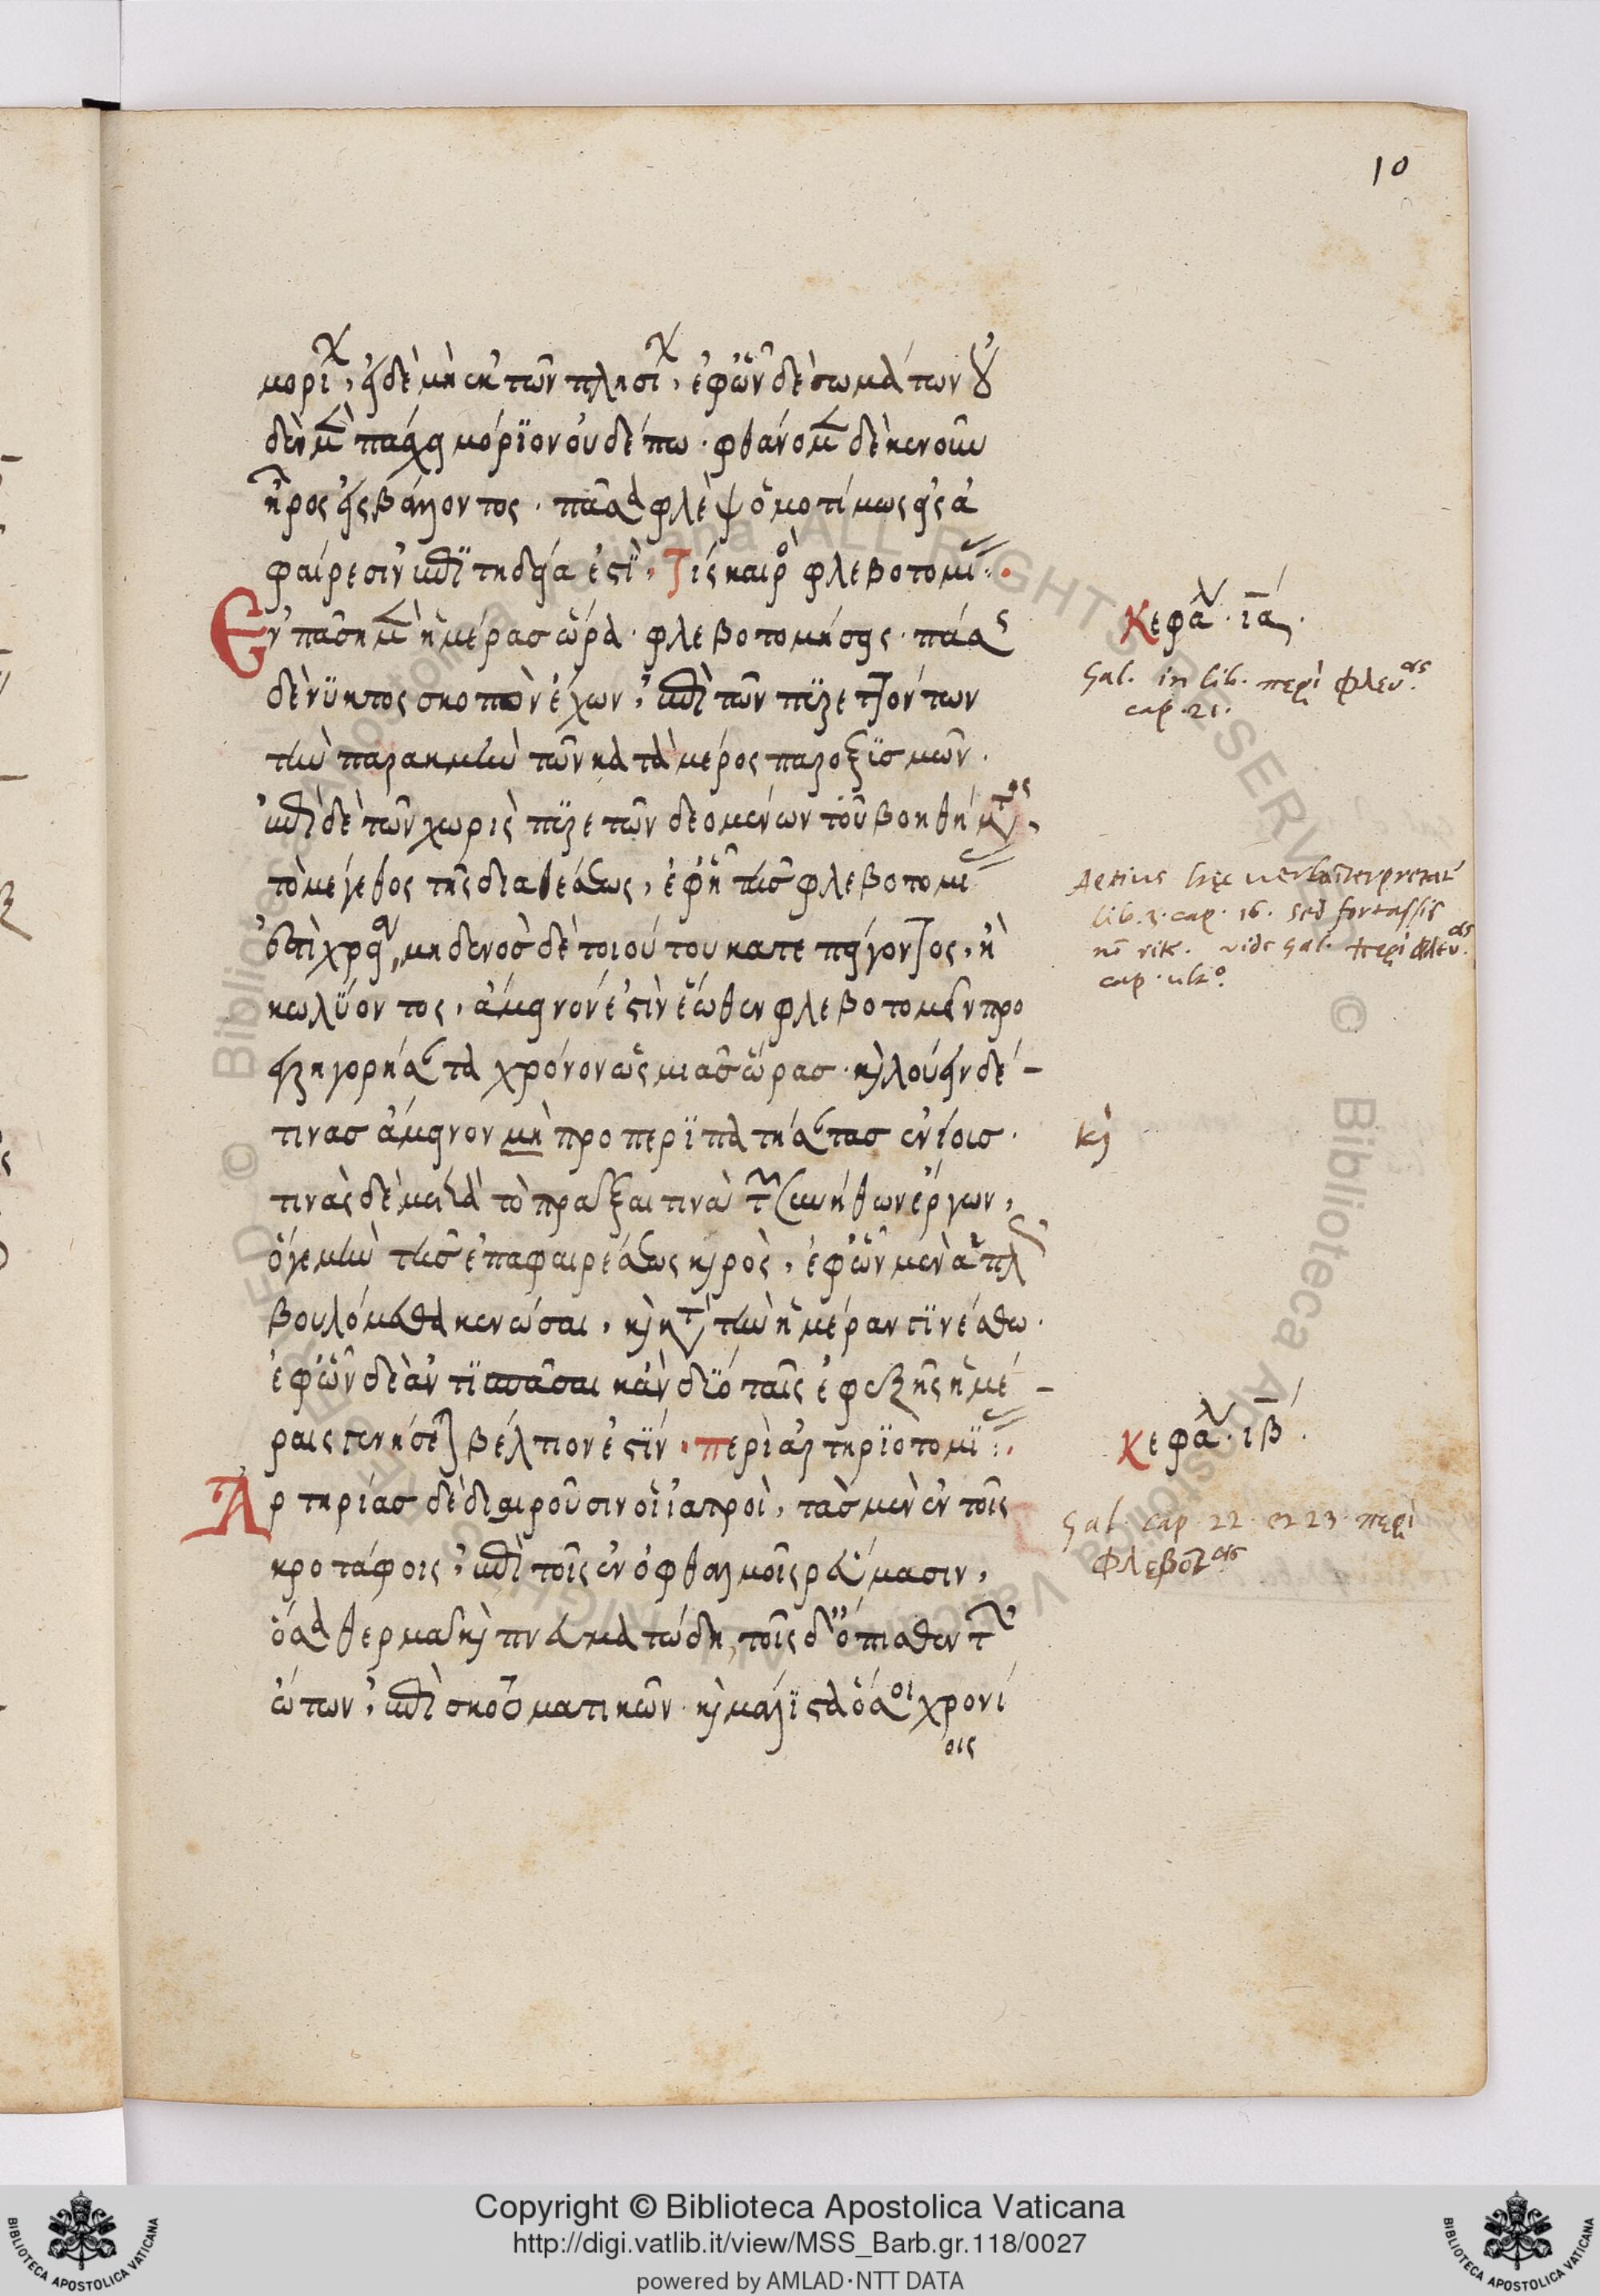 10
μορί, εἰ δὲ μὴ ἐκ τῶν πλησί, ἐφ' ὧν δὲ σωμάτων οὐ
δὲν μὲν πάσχει μόριον οὐδέπω· φθάνομεν δὲ κενοῦν
ἦρος εἰσβάλλοντος· πᾶσα φλὲψ ὁμοτίμως εἰς ἀ
φαίρεσιν ἐπιτηδεία ἐστὶ, Τίς καιρὸ φλεβοτομί:·
Εν πάση μὲν ἡμέρας ὥρα· φλεβοτομήσεις· πάσης
δὲ νϋκτὸς σκοπὸν ἔχων, ἐπὶ τῶν πυρεττόντων
τὴν παρακμὴν τῶν κατὰ μέρος παροξϋσμῶν·
ἐπὶ δὲ τῶν χωρὶς πυρετῶν δεομένων τοῦ βοηθήματος,
τὸ μέγεθος τῆς διαθέσεως, ἐφ' ᾗ τῆς φλεβοτομί
ἐστὶ χρεία, μηδενὸσ δὲ τοιούτου κατεπείγοντος, ἢ
κωλϋοντος, ἄμεινον ἐστὶν ἕωθεν φλεβοτομεῖν προ
εγρηγορήσαντα χρόνον ὡς μιᾶσ ὥρασ· καὶ λούειν δέ-
τινασ ἄμεινον μὴ προπεριπατήσαντασ ἐνίοισ·
καὶ
τινὰς δὲ μετὰ τὸ πρᾶξαι τινὰ τῶν συνήθων ἔργων,
ὅγε μὴν τῆσ ἐπαφαιρέσεως καιρὸς, ἐφ' ὧν μὲν ἁπλ
βουλόμεθα κενῶσαι, καὶ κατὰ τὴν ἡμέραν γϊνέσθω·
ἐφ' ὧν δὲ ἀντϊσπᾶσαι κἀν δϊὸ ταῖς ἐφεξῆς ἡμέ-
ραις γενήσεται βέλτιον ἐστϊν· περὶ ἀρτηρϊοτομϊ:·
Αρτηρίασ δὲ διαιροῦσιν οἱ ἰατροὶ, τὰσ μὲν ἐν τοῖς
κροτάφοις, ἐπὶ τοῖς ἐν ὀφθαλμοῖς ρεύμασιν,
ὅσα θερμὰ καὶ πνευματώδη, τοῖς δ' ὄπισθεν τῶν
ὤτων, ἐπὶ σκοτωματικῶν· καὶ μάλϊστα ὅσοι χρονί
οις
Κεφαλ· ια·
Gal. in lib. περὶ φλεβ.ας
cap. 21.
Aetius hęc verba interpretat
lib. 3. cap. 16. sed fortassis
nō rite. vide Gal. περὶ φλεβ.ας
cap. ult.º
Κεφαλ· ιβ·
Gal. cap. 22 et 23 περὶ
φλεβοτ.ας
Copyright © Biblioteca Apostolica Vaticana
http://digi.vatlib.it/view/MSS_Barb.gr.118/0027
powered by AMLAD·NTT DATA
BIBLIOTECA APOSTOLICA VATICANA
BIBLIOTECA APOSTOLICA VATICANA